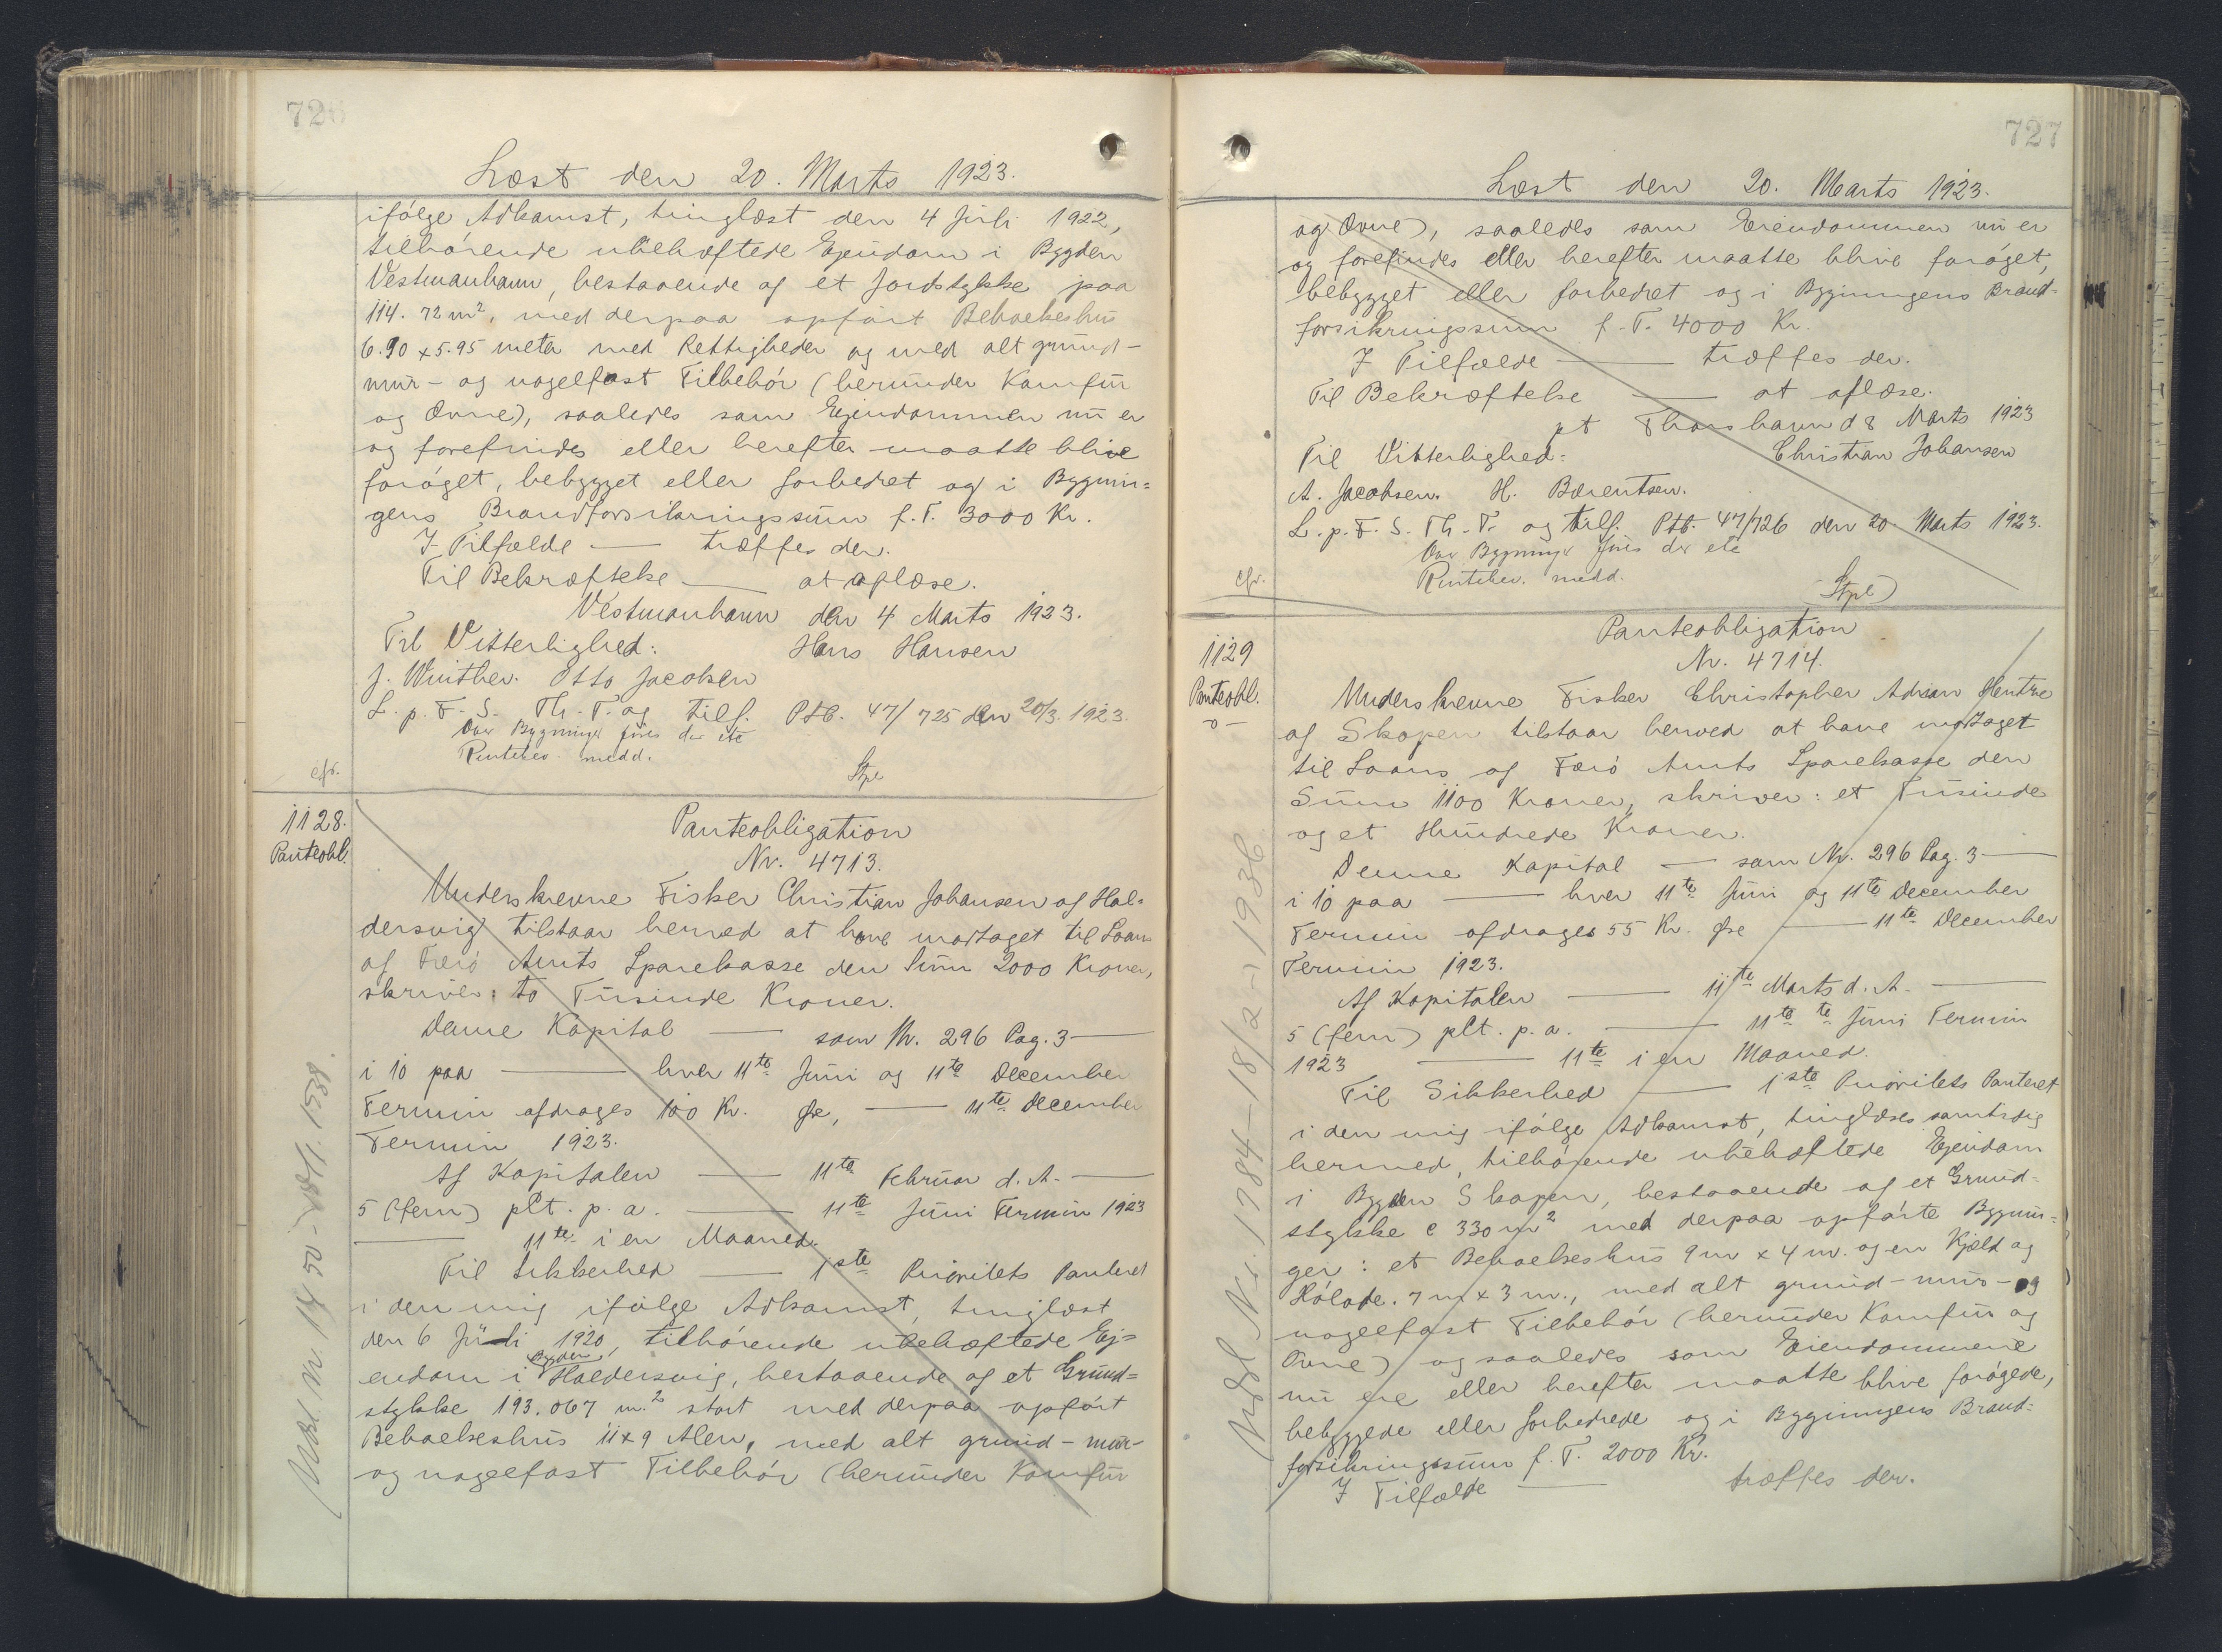 726
Læst den 20. Marts 1923.
ifölge Adkomst, tinglæst den 4 Juli 1922,
tilhörende ubehæftede Ejendom i Bygden
Vestmanhavn, bestaaende af et Jordstykke paa
114.72 m², med derpaa opfört Beboelseshus
6.90 x 5.95 meter med Rettigheder og med alt grund-
mur- og nagelfast Tilbehör (herunder Komfur
og Ovne), saaledes som Ejendommen nu er
og forefindes eller herefter maatte blive
foröget, bebygget eller forbedret og i Bygnin=
gens Brandforsikringssum f. T. 3000 Kr.
I Tilfælde — træffes der.
Til Bekræftelse — at aflæse.
Vestmanhavn den 4 Marts 1923.
Til Vitterlighed: Hans Hansen
J. Winther. Otto Jacobsen
L. p. F. S. Th. T. og tilf. Ptb. 47/725 den 20/3. 1923.
Over Bygninger føres der etc
Rentebev. medd.
cfr. Stpl
1128.
Panteobl.
Panteobligation
Nr. 4713.
Underskrevne Fisker Christian Johansen af Hal=
dersvig tilstaar herved at have modtaget til Laans
af Færö Amts Sparekasse den Sum 2000 Kroner,
skriver: to Tusinde Kroner.
Denne Kapital — som Nr. 296 Pag. 3 —
i 10 paa — hver 11te Juni og 11te December
Termin afdrages 100 Kr. Øre, — 11te December
Termin 1923.
Af Kapitalen — 11te Februar d. A. —
5 (fem) pCt. p. a. — 11te Juni Termin 1923
— 11te i en Maaned.
Til Sikkerhed — 1ste Prioritets Panteret
i den mig ifölge Adkomst, tinglæst
den 6 Juli 1920, tilhörende ubehæftede Ej=
endom i Bygden Haldersvig, bestaaende af et Grund=
stykke 193.067 m.² stort med derpaa opfört
Beboelseshus 11 x 9 Alen, med alt grund- mur-
og nagelfast Tilbehör (herunder Komfur
727
Læst den 20. Marts 1923.
og Ovne), saaledes som Ejendommen nu er
og forefindes eller herefter maatte blive foröget,
bebygget eller forbedret og i Bygningens Brand=
forsikringssum f. T. 4000 Kr.
I Tilfælde — træffes der.
Til Bekræftelse — at aflæse.
pt Thorshavn d 8 Marts 1923
Til Vitterlighed: Christian Johansen
A. Jacobsen. H. Bærentsen.
L. p. F. S. Th. T. og tilf. Ptb. 47/726 den 20. Marts 1923.
Over Bygninger føres der etc
cfr. Rentebev. medd. Stpl
1129
Panteobl.
Panteobligation
Nr. 4714.
Underskrevne Fisker Christopher Adrian Hentze
af Skopen tilstaar herved at have modtaget
til Laans af Færö Amts Sparekasse den
Sum 1100 Kroner, skriver: et Tusinde
og et Hundrede Kroner.
Denne Kapital — som Nr. 296 Pag. 3 —
i 10 paa — hver 11te Juni og 11te December
Termin afdrages 55 Kr. Øre — 11te December
Termin 1923.
Af Kapitalen — 11te Marts d. A. —
5 (fem) pCt. p. a. — 11te te Juni Termin
1923 — 11te i en Maaned.
Til Sikkerhed — 1ste Prioritets Panteret
i den mig ifölge Adkomst, tinglæses samtidig
hermed, tilhörende ubehæftede Ejendom
i Bygden Skopen, bestaaende af et Grund-
stykke c 330 m² med derpaa opförte Bygnin=
ger: et Beboelseshus 9 m x 4 m. og en Kjeld og
Hölade. 7 m x 3 m., med alt grund- mur- og
nagelfast Tilbehör (herunder Komfur og
Ovne) og saaledes som Ejendommene
nu ere eller herefter maatte blive forögede,
bebyggede eller forbedrede og i Bygningens Brand=
forsikringssum f. T. 2000 Kr.
I Tilfælde — træffes der.
Udsl. Nr. 1784 - 18/2 - 1936